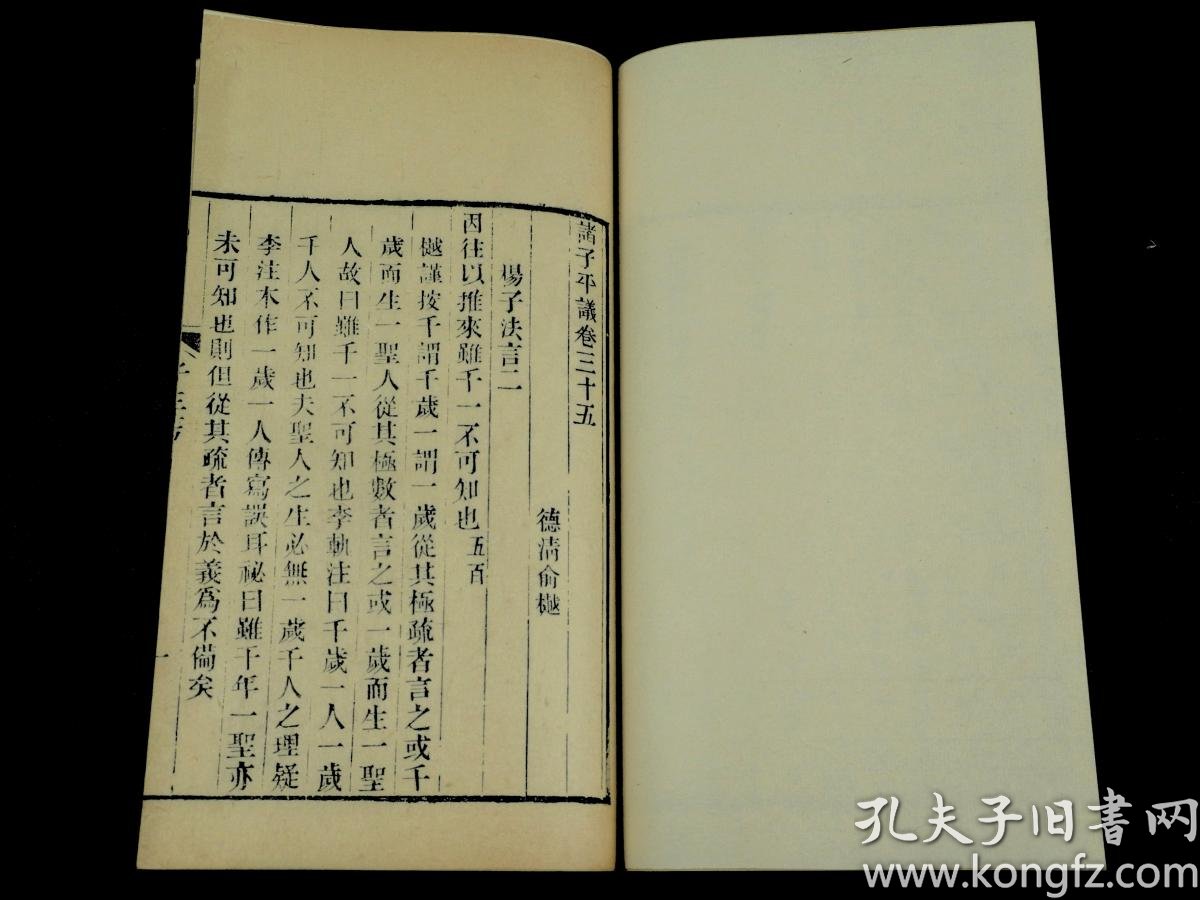 諸子平議卷三十五
德清俞樾
楊子法言二
因往以推來雖千一不可知也五百
樾謹按千謂千歲一謂一歲從其極疏者言之或千
歲而生一聖人從其極數者言之或一歲而生一聖
人故曰雖千一不可知也李軌注曰千歲一人一歲
千人不可知也夫聖人之生必無一歲千人之理疑
李注本作一歲一人傳寫誤耳祕曰雖千年一聖亦
未可知也則但從其疏者言於義爲不備矣
子三五
一
孔夫子旧书网
www.kongfz.com